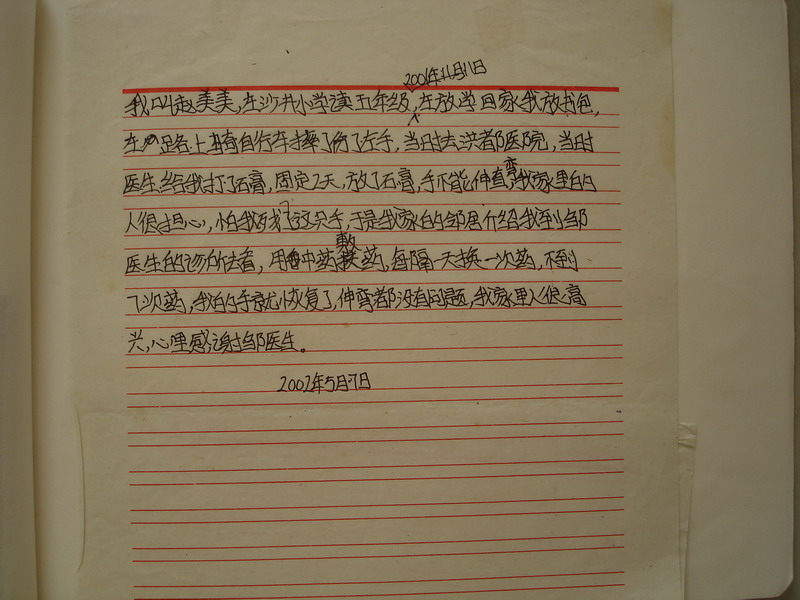 2001年11月11日
我叫赵美美,在沙井小学读五年级,在放学回家我放书包,
在路上骑自行车摔了伤了左手,当时去洪都医院,当时
医生给我打了石膏,固定2天,放了石膏,手不能伸直弯,我家里的
人很担心,怕我残了这只手,于是我家的邻居介绍我到邹
医生的诊所去看,用中药敷药,每隔一天换一次药,不到
7次药,我的手就恢复了,伸弯都没有问题,我家里人很高
兴,心里感谢邹医生。
2002年5月7日